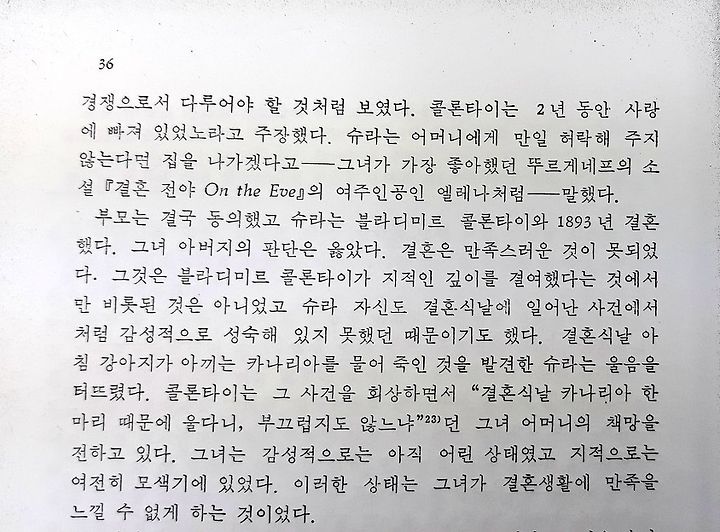 36
경쟁으로서 다루어야 할 것처럼 보였다. 콜론타이는 2년 동안 사랑
에 빠져 있었노라고 주장했다. 슈라는 어머니에게 만일 허락해 주지
않는다면 집을 나가겠다고——그녀가 가장 좋아했던 뚜르게네프의 소
설 『결혼 전야 On the Eve』의 여주인공인 엘레나처럼——말했다.
부모는 결국 동의했고 슈라는 블라디미르 콜론타이와 1893년 결혼
했다. 그녀 아버지의 판단은 옳았다. 결혼은 만족스러운 것이 못되었
다. 그것은 블라디미르 콜론타이가 지적인 깊이를 결여했다는 것에서
만 비롯된 것은 아니었고 슈라 자신도 결혼식날에 일어난 사건에서
처럼 감성적으로 성숙해 있지 못했던 때문이기도 했다. 결혼식날 아
침 강아지가 아끼는 카나리아를 물어 죽인 것을 발견한 슈라는 울음을
터뜨렸다. 콜론타이는 그 사건을 회상하면서 “결혼식날 카나리아 한
마리 때문에 울다니, 부끄럽지도 않느냐”23)던 그녀 어머니의 책망을
전하고 있다. 그녀는 감성적으로는 아직 어린 상태였고 지적으로는
여전히 모색기에 있었다. 이러한 상태는 그녀가 결혼생활에 만족을
느낄 수 없게 하는 것이었다.